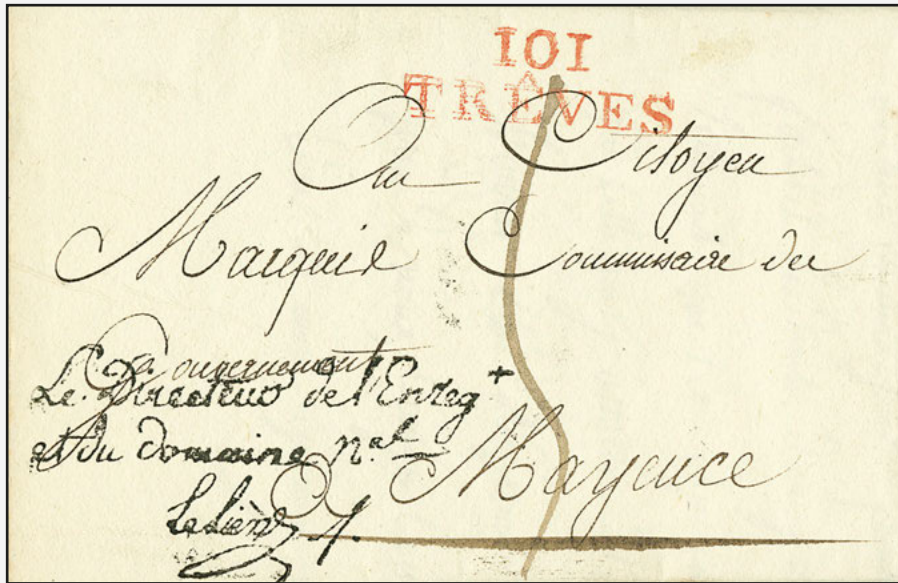 101
TRÊVES
Au Citoyen
Marquis Commissaire du
Gouvernement
Le Directeur de l'Enreg.t
et du domaine n.al
Mayence